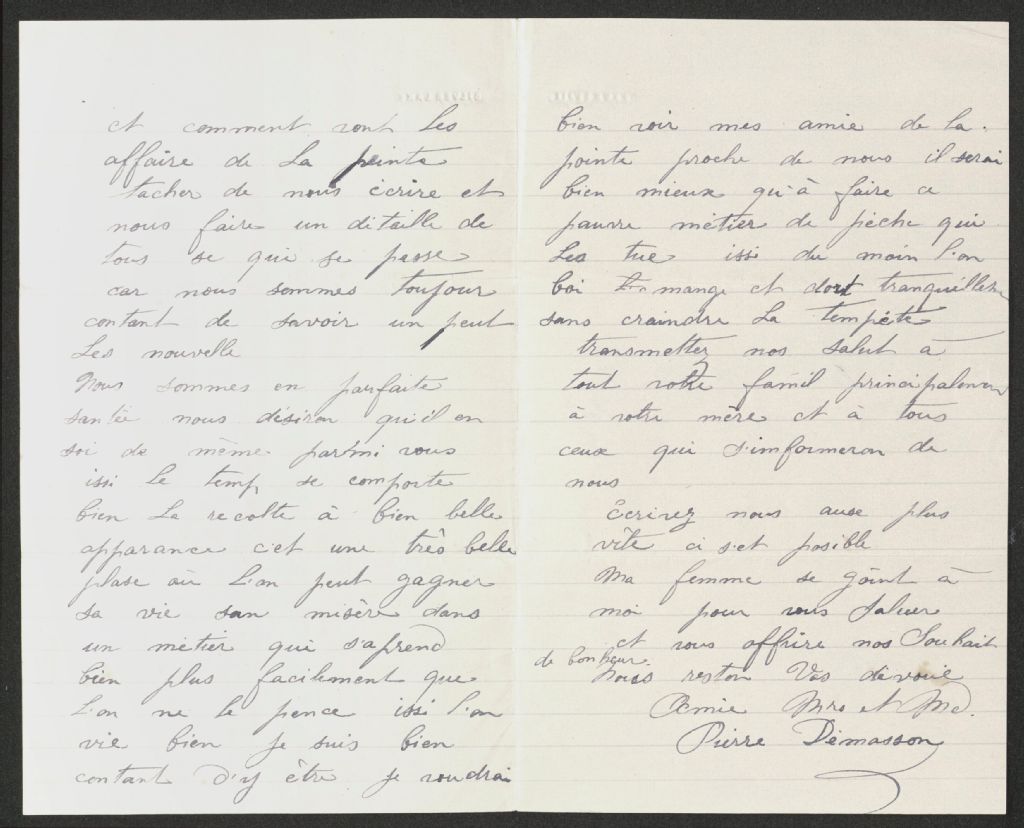 et comment vont les
affaire de la pointe
tacher de nous écrire et
nous faire un ditaille de
tous se qui se passe
car nous sommes toujour
contant de savoir un peut
les nouvelle
Nous sommes en parfaite
santée nous désiron qu'il en
soi de même parmi vous
issi le temp se comporte
bien la recolte à bien belle
apparance c'et une très belle
plase où l'on peut gagner
sa vie san misère dans
un métier qui s'aprend
bien plus facilement que
l'on ne le pence issi l'on
vie bien je suis bien
contant d'y être je voudrai
bien voir mes amie de la
pointe proche de nous il serai
bien mieux qu'à faire ce
pauvre métier de pèche qui
les tue issi du moin l'on
boi mange et dort tranquillem
sans craindre la tempête
transmettez nos salut à
tout votre famil principalemen
à votre mère et à tous
ceux qui s'informeron de
nous
Ecrivez nous ause plus
vîte ci s'et posible
Ma femme se gôint à
moi pour vous saluer
et vous offrire nos Souhait
de bonheur.
Nous reston Vos dévoué
Amie Mro et Me
Pierre Démasson